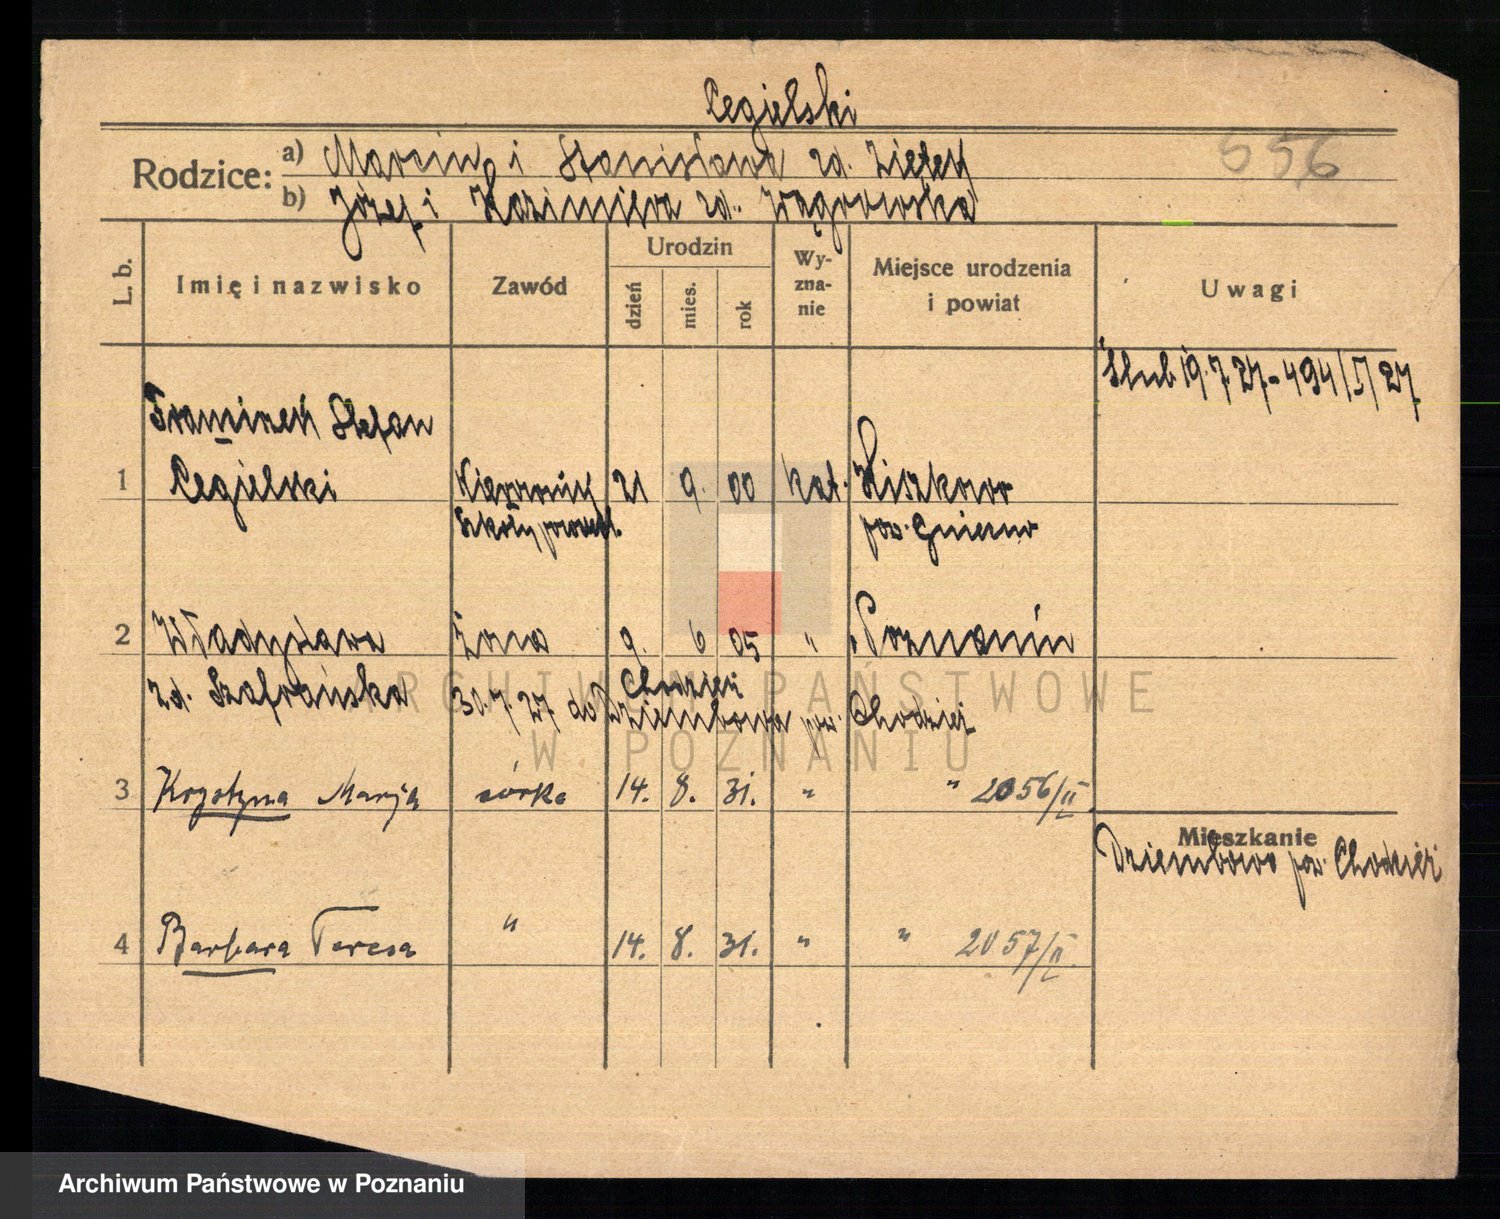 Cegielski
Rodzice: a) Marcin i Stanisława zd. Ziętek
b) Józef i Kazimiera zd. Wągrowska
656
L. b.
Imię i nazwisko
Zawód
Urodzin
dzień
mies.
rok
Wy-
zna-
nie
Miejsce urodzenia
i powiat
Uwagi
Ślub 19.7.27 - 494/I/27
Franciszek Stefan
1 Cegielski Kierownik 21 9. 00 kat. Kiszkowo
Szkoły powsz. pow. Gniezno
2 Władysława żona 9. 6 05 " Poznań
zd. Szafrańska
Chodzież
30.7.27 do Dziembowa pow. Chodzież
3 Krystyna Marja córka 14. 8. 31. " " 2056/II
Mieszkanie
Dziembowo pow. Chodzież
4 Barbara Teresa " 14. 8. 31. " " 2057/II
ARCHIWUM PAŃSTWOWE
W POZNANIU
Archiwum Państwowe w Poznaniu